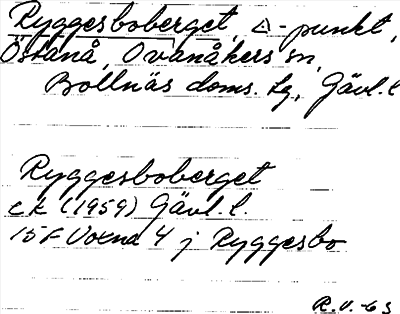 Ryggesboberget, △-punkt,
Östanå, Ovanåkers sn,
Bollnäs doms. tg, Gävl. l
Ryggesboberget
ek (1959) Gävl. l.
15F Voxna 4 j Ryggesbo
R.V. -63